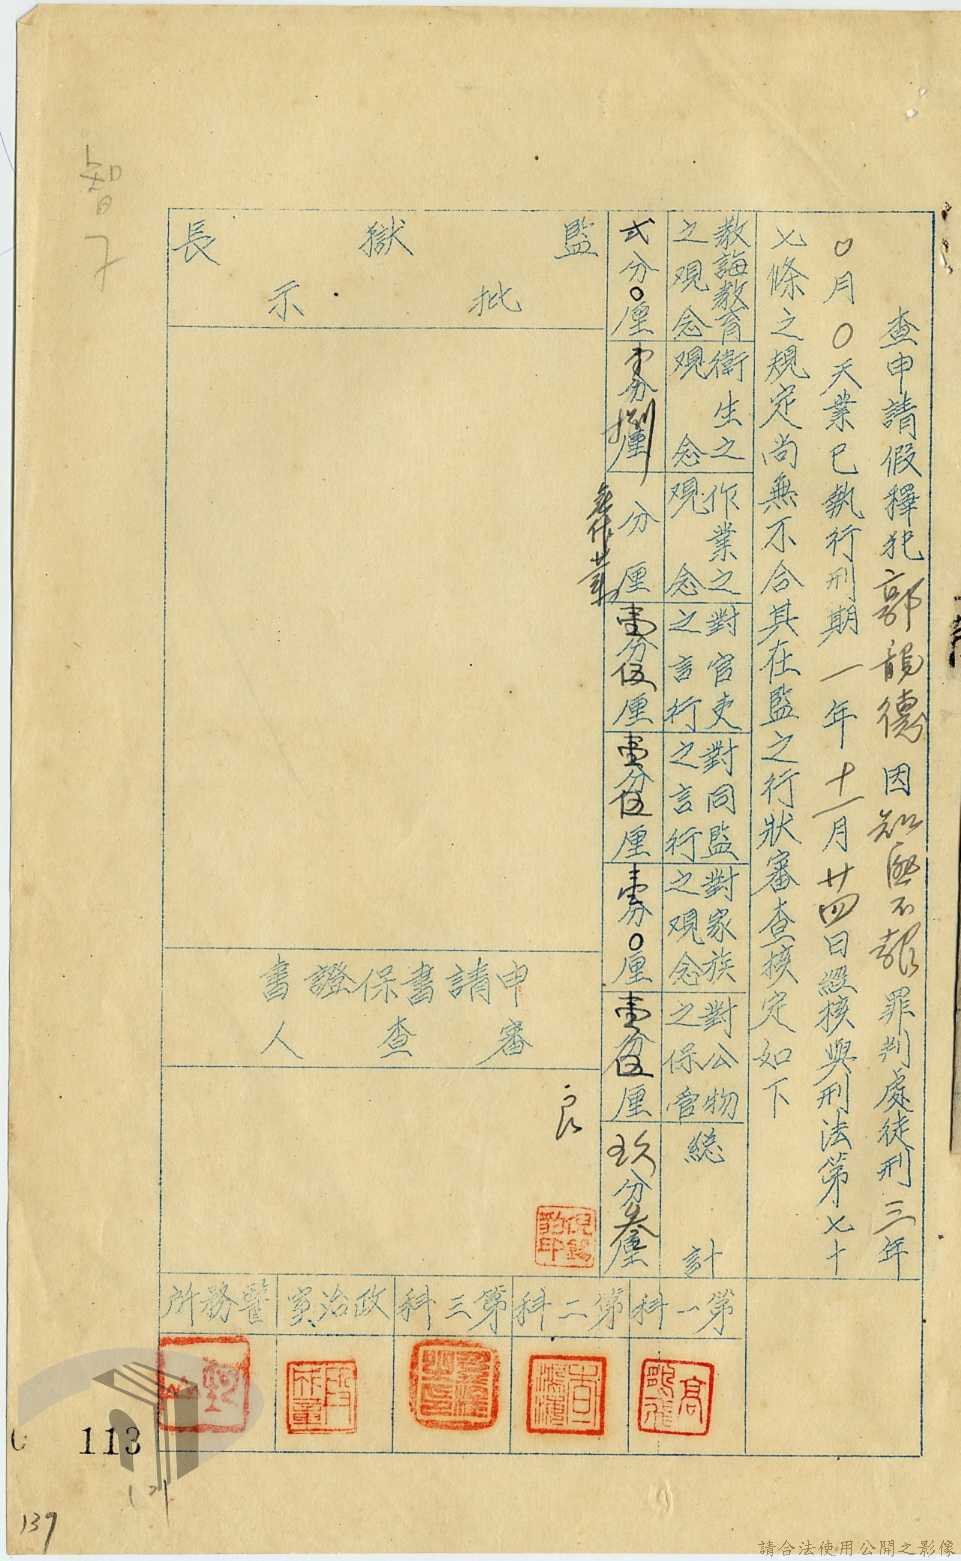 查申請假釋犯郭龍德因知匪不報罪判處徒刑三年
〇月〇天業已執行刑期一年十一月廿四日經核與刑法第七十
七條之規定尚無不合其在監之行狀審查核定如下
教誨教育之觀念
衛生之觀念
作業之觀念
對官吏之言行
對同監之言行
對家族之觀念
對公物之保管
總計
弍分〇厘
分捌厘
分厘
無作業
壹分伍厘
壹分伍厘
壹分〇厘
壹分伍厘
玖分叁厘
監獄長
批示
申請書保證書
審查人
良
第一科
第二科
第三科
政治室
醫務所
高
智
113
139
請合法使用公開之影像